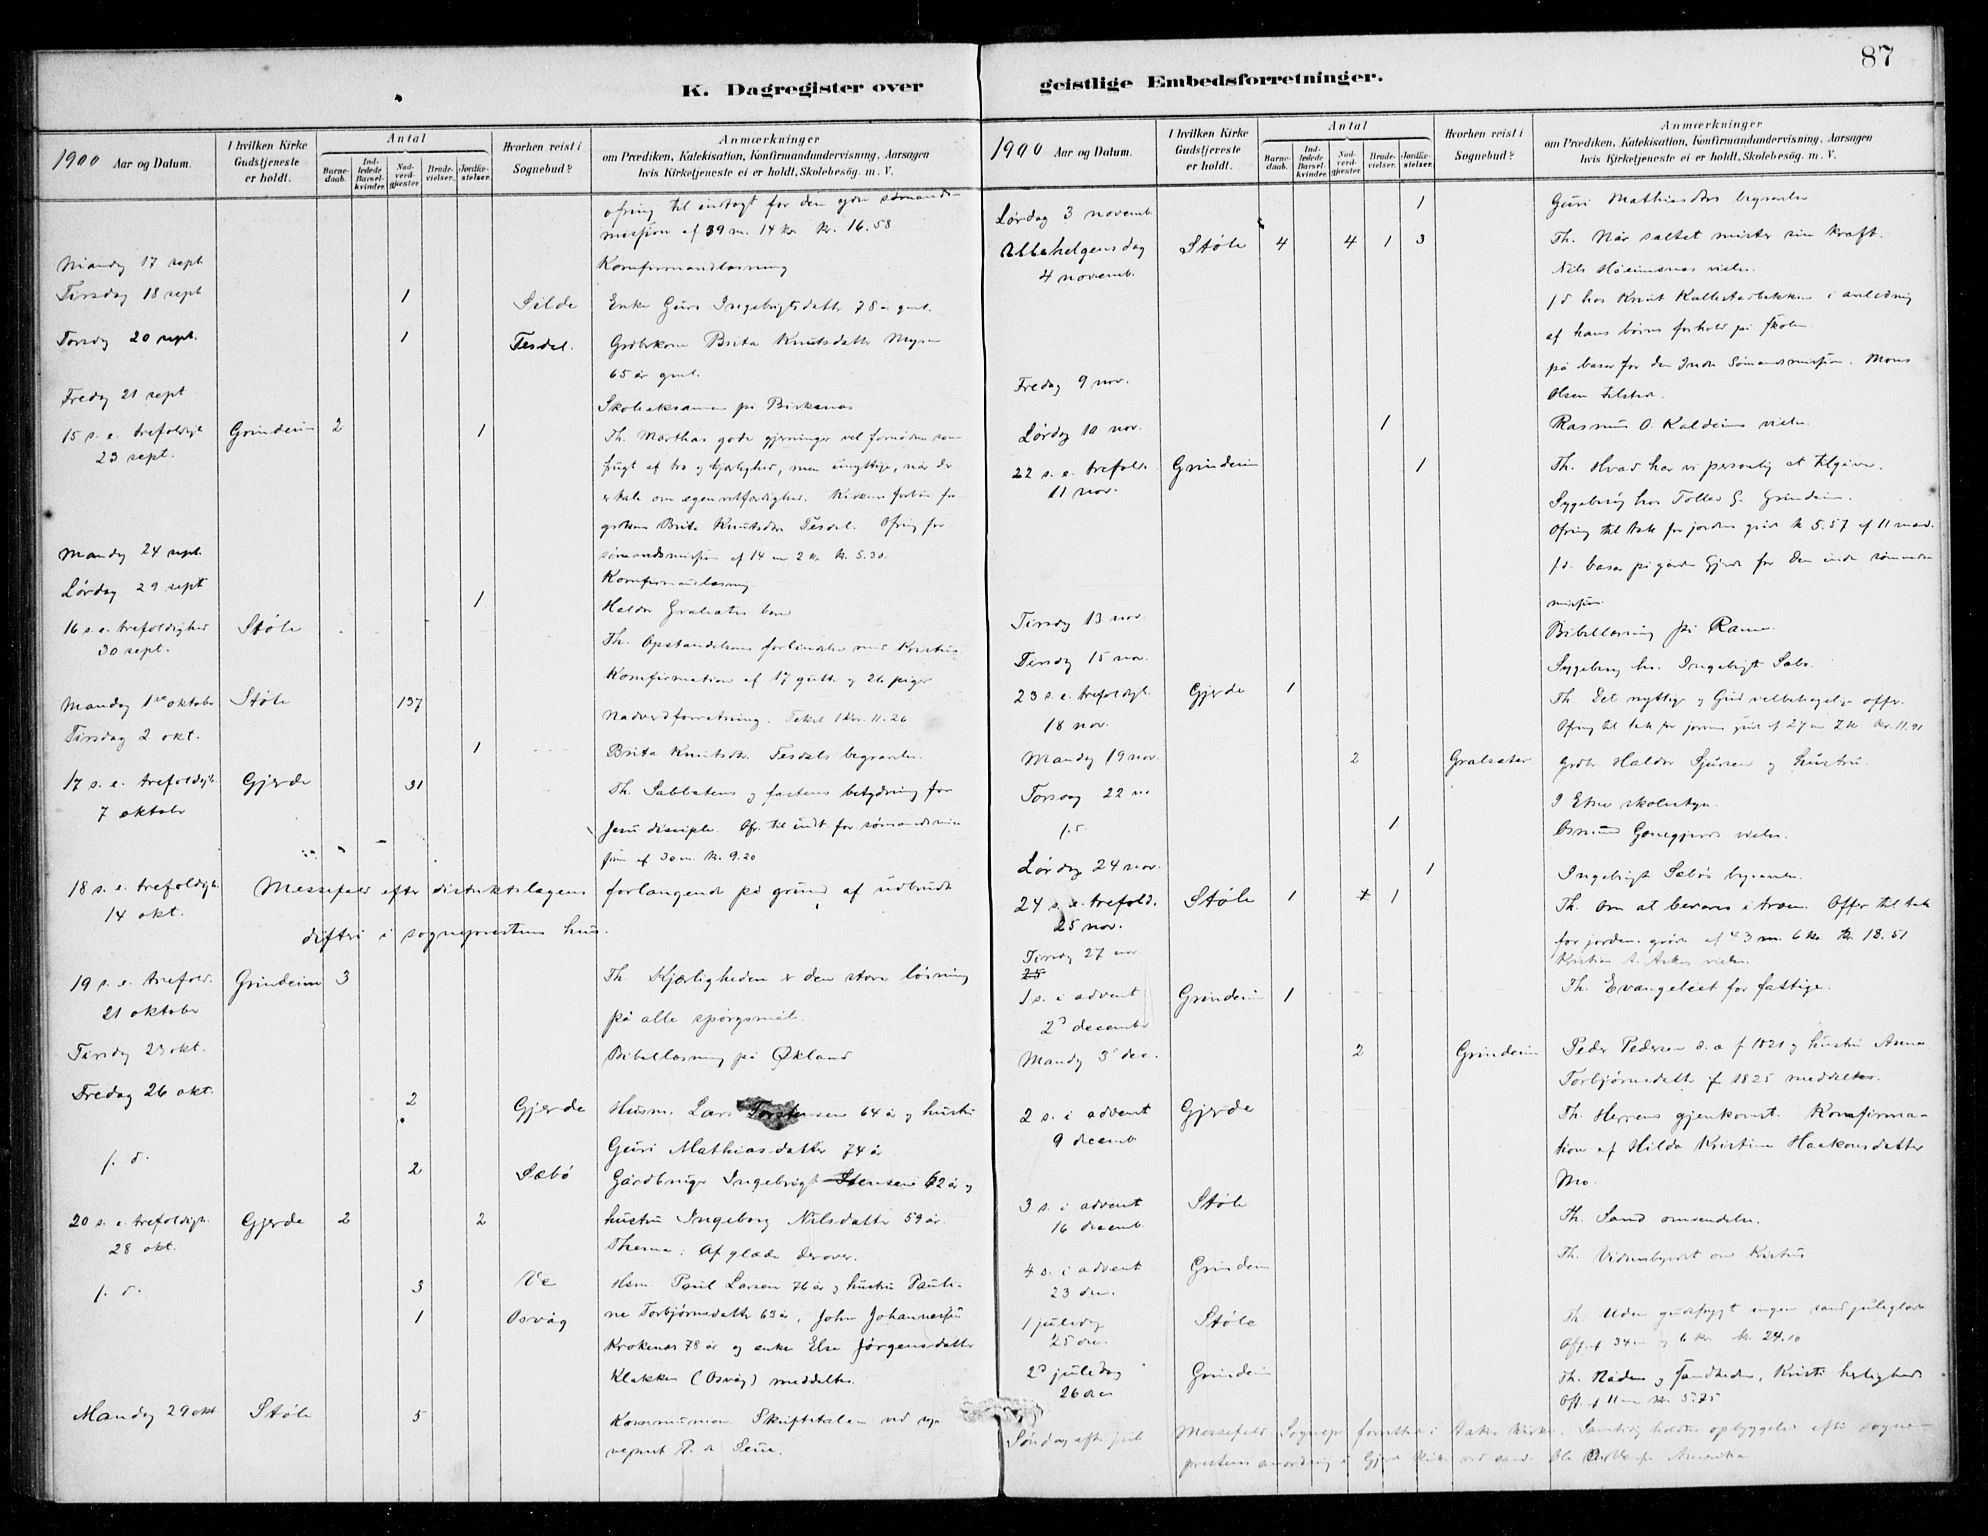 87
K. Dagregister over geistlige Embedsforretninger.
1900 Aar og Datum.
I hvilken Kirke Gudstjeneste er holdt.
Antal
Barnedaab.
Indledede Barselkvinder.
Nadverdgjester
Brudevielser.
Jordfæstelser.
Hvorhen reist i Sognebud?
Anmærkninger
om Prædiken, Katekisation, Konfirmandundervisning, Aarsagen
hvis Kirketjeneste ei er holdt, Skolebesög. m. V.
ofring til indtægt for den indre sømands-
mission af 39 m. 14 kv. kr. 16.58
Mandag 17 sept. Konfirmandlæsning
Tirsdag 18 sept 1 Silde Enke Guro Ingebrigtsdatter 78 år gml.
Torsdag 20 sept. 1 Tesdal. Brita Knutsdatter
65 år gml.
Fredag 21 sept Skoleeksamen på Birkenes
15 s. e. trefoldigh. Grindeim 2 1 Th. Marthas gode gjerninger vel fornødne som
23 sept. frugt af tro og kjærlighed, men unyttige, når der
er tale om egenretfærdighed. Kirken
Brita Knutsdtr Tesdal. Ofring for
sømandsmission af 14 m 2 kv kr. 5.30.
Mandag 24 sept. Konfirmandlæsning
Lørdag 29 sept 1 Haldor Gralsæters barn
16 s. e. trefoldighed Støle Th. Opstandelsens forbindelse med Kristus.
30 sept. Konfirmation af 17 gutter og 26 piger
Mandag 1ste oktober Støle 137 Nadverdforretning. Tekst 1 Kor. 11. 26
Tirsdag 2 okt. 1 Brita Knutsdtr. Tesdals begravelse.
17 s. e. trefoldigh. Gjerde 31 Th. Sabbatens og fastens betydning for
7 oktober Jesu disciple. Ofr. til indt. for sømandsmis-
sion af 30 m. kr. 9.20
18 s. e. trefoldigh. Messefald efter distriktslægens forlangende på grund af udbrudt
14 okt. difteri i sogneprestens hus.
19 s. e. trefold. Grindeim 3 Th. Kjærligheden er den store løsning
21 oktober på alle spørgsmål.
Tirsdag 23 okt. Bibellæsning på Økland
Fredag 26 okt. 2 Gjerde Husm. Lars Torstensen 64 år og hustru
Guri Mathiasdatter 74 år
s. d. 2 Sæbø Gårdbruger Ingebrigt Stensen 62 år og
20 s. e. trefoldigh. Gjerde 2 2 hustru Ingeborg Nilsdatter 59 år.
28 okt. Thema. Af glæde derover.
s. d. 3 Ve Hsm. Paul Larsen 76 år og hustru Pauli-
1 Osvåg ne Torbjørnsdatter 63 år, John Johannessen
Krokenes 78 år og enke Else Jørgensdatter
Klakken (Osvåg) meddeltes.
Mandag 29 okt. Støle 5 Kommunion. Skriftetalen ved
1900 Aar og Datum.
I hvilken Kirke Gudstjeneste er holdt.
Antal
Barnedaab.
Indledede Barselkvinder.
Nadverdgjester
Brudevielser.
Jordfæstelser.
Hvorhen reist i Sognebud?
Anmærkninger
om Prædiken, Katekisation, Konfirmandundervisning, Aarsagen
hvis Kirketjeneste ei er holdt, Skolebesög. m. V.
Lørdag 3 novemb. 1 Guri Mathiasdtrs begravelse
Allehelgensdag Støle 4 4 1 3 Th. Når saltet mister sin kraft.
4 novemb. Nils vielse.
s d hos Knut i anledning
af hans børns forhold på skolen
Fredag 9 nov. på basar for den Indre Sømandsmission. Mons
Olsen
Lørdag 10 nov. 1 Rasmus O. Kaldeims vielse.
22 s. e. trefold. Grindeim 1 Th. Hvad har vi personlig at tilgive.
11 nov. Sygebesøg hos Tollev G. Grindeim.
Ofring til tak for jordens grøde kr 5.57 af 11 mænd.
s. d. basar på gården Gjerde for den indre sømands-
mission
Tirsdag 13 nov. Bibellæsning på
15 nov. Sygebesøg hos Ingebrigt Sæbø.
23 s. e. trefoldigh. Gjerde 1 Th. Et nyttigt og Gud velbehageligt offer.
18 nov. Ofring til tak for jordens grøde af 27 m 2 kv kr. 11.91
Mandag 19 nov. 2 Gralsæter Grdbr. Haldor Sjursen og hustru.
Torsdag 22 nov I Etne skolestyre.
s. d. 1 vielse.
Lørdag 24 nov. 1 Ingebrigt Sæbøs begravelse.
24 s. e. trefold. Støle 1 1 Th. Om at bevares i troen. Offer til tak
25 nov. for jordens grøde af 43 m. 6 kv kr. 18.51
Tirsdag 27 nov. Kristian vielse.
25
1 s. i advent Grindeim 1 Th. Evangeliet for fattige.
2d december
Mandag 3d dec. 2 Grindeim Peder Pedersen d. æ f 1821 og hustru Anna
Torbjørnsdatter f 1825 meddeltes.
2 s. i advent Gjerde Th. Herrens gjenkomst. Konfirma-
9 decemb tion af Hilda Kristine Haakonsdatter
Mo.
3 s. i advent Støle Th. Sand omvendelse.
16 decemb
4 s. i advent Grindeim Th. Vidnesbyrdet om Kristus
23 dec.
1 juledag Støle Th. Uden gudsfrygt ingen sand juleglæde
25 dec. Off. af 34 m og 6 kv. kr. 24.10
2d juledag Grindeim Th. Nåden og Sandheden, Kristi herlighed
26 dec Off. af 11 m kr. 5.75
Søndag efter jul Messefald. Sognepr. forretter i kirke. Samtidig holdtes opbyggelse efter sogne-
prestens anordning i Gjerde kirke ved Ole fra Amerika